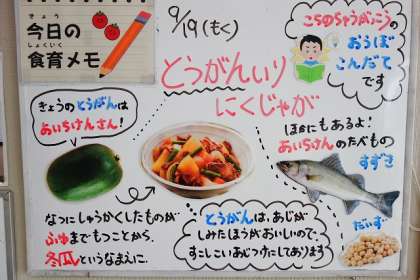 きょう
今日の
しょくいく
食育メモ
9/19(もく)
こちのちゅうがっこうの
おうぼ
こんだて
です
とうがんいり
にくじゃが
きょうのとうがんは
あいちけんさん!
ほかにもあるよ!
あいちけんのたべもの
すずき
だいず
なつにしゅうかくしたものが
ふゆまでもつことから、
冬瓜というなまえに。
とうがんは、あじが
しみたほうがおいしいので、
すこしこいあじつけにしてあります